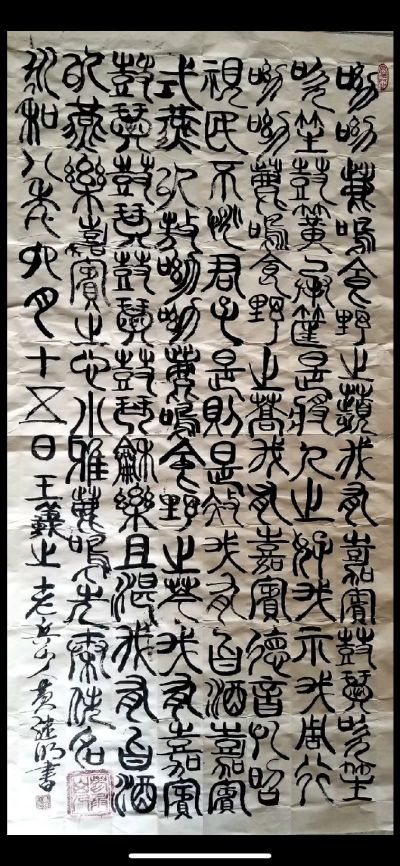 呦呦鹿鳴食野之蘋我有嘉賓鼓瑟吹笙
吹笙鼓簧承筐是將人之好我示我周行
呦呦鹿鳴食野之蒿我有嘉賓德音孔昭
視民不恌君子是則是傚我有旨酒嘉賓
式燕以敖呦呦鹿鳴食野之芩我有嘉賓
鼓瑟鼓琴鼓瑟鼓琴龢樂且湛我有旨酒
以燕樂嘉賓之心小雅鹿鳴先秦佚名
永和八年月十五日王之老兵黄明書